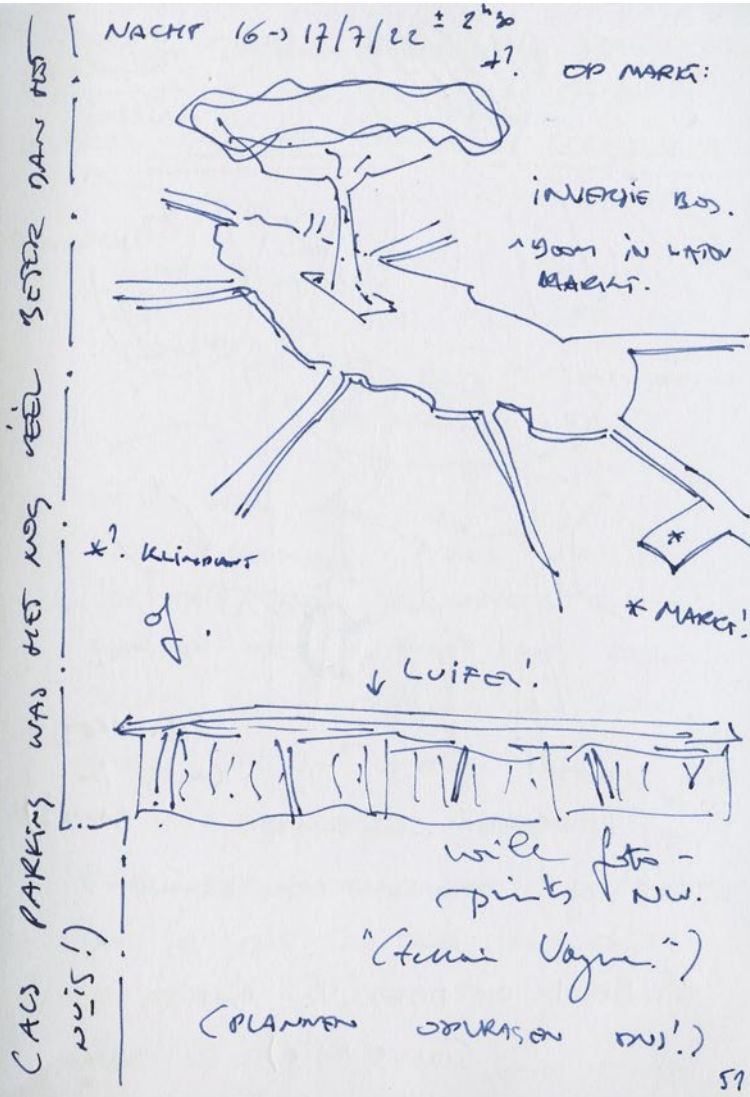 NACHT 16-> 17/7/22 ± 2h30
+?
OP MARKT:
INVERSIE BOS.
^BOOM IN LATEN
MARKT.
*?. KLIMPLANT
of.
* MARKT!
*
↓ LUIFEL!
foto-
prints NW.
"(Terrain Vague.")
(PLANNEN OPVRAGEN ENS!)
(ALS PARKING WAS HET NOG VÉÉL BETER DAN HET
NU IS!)
51